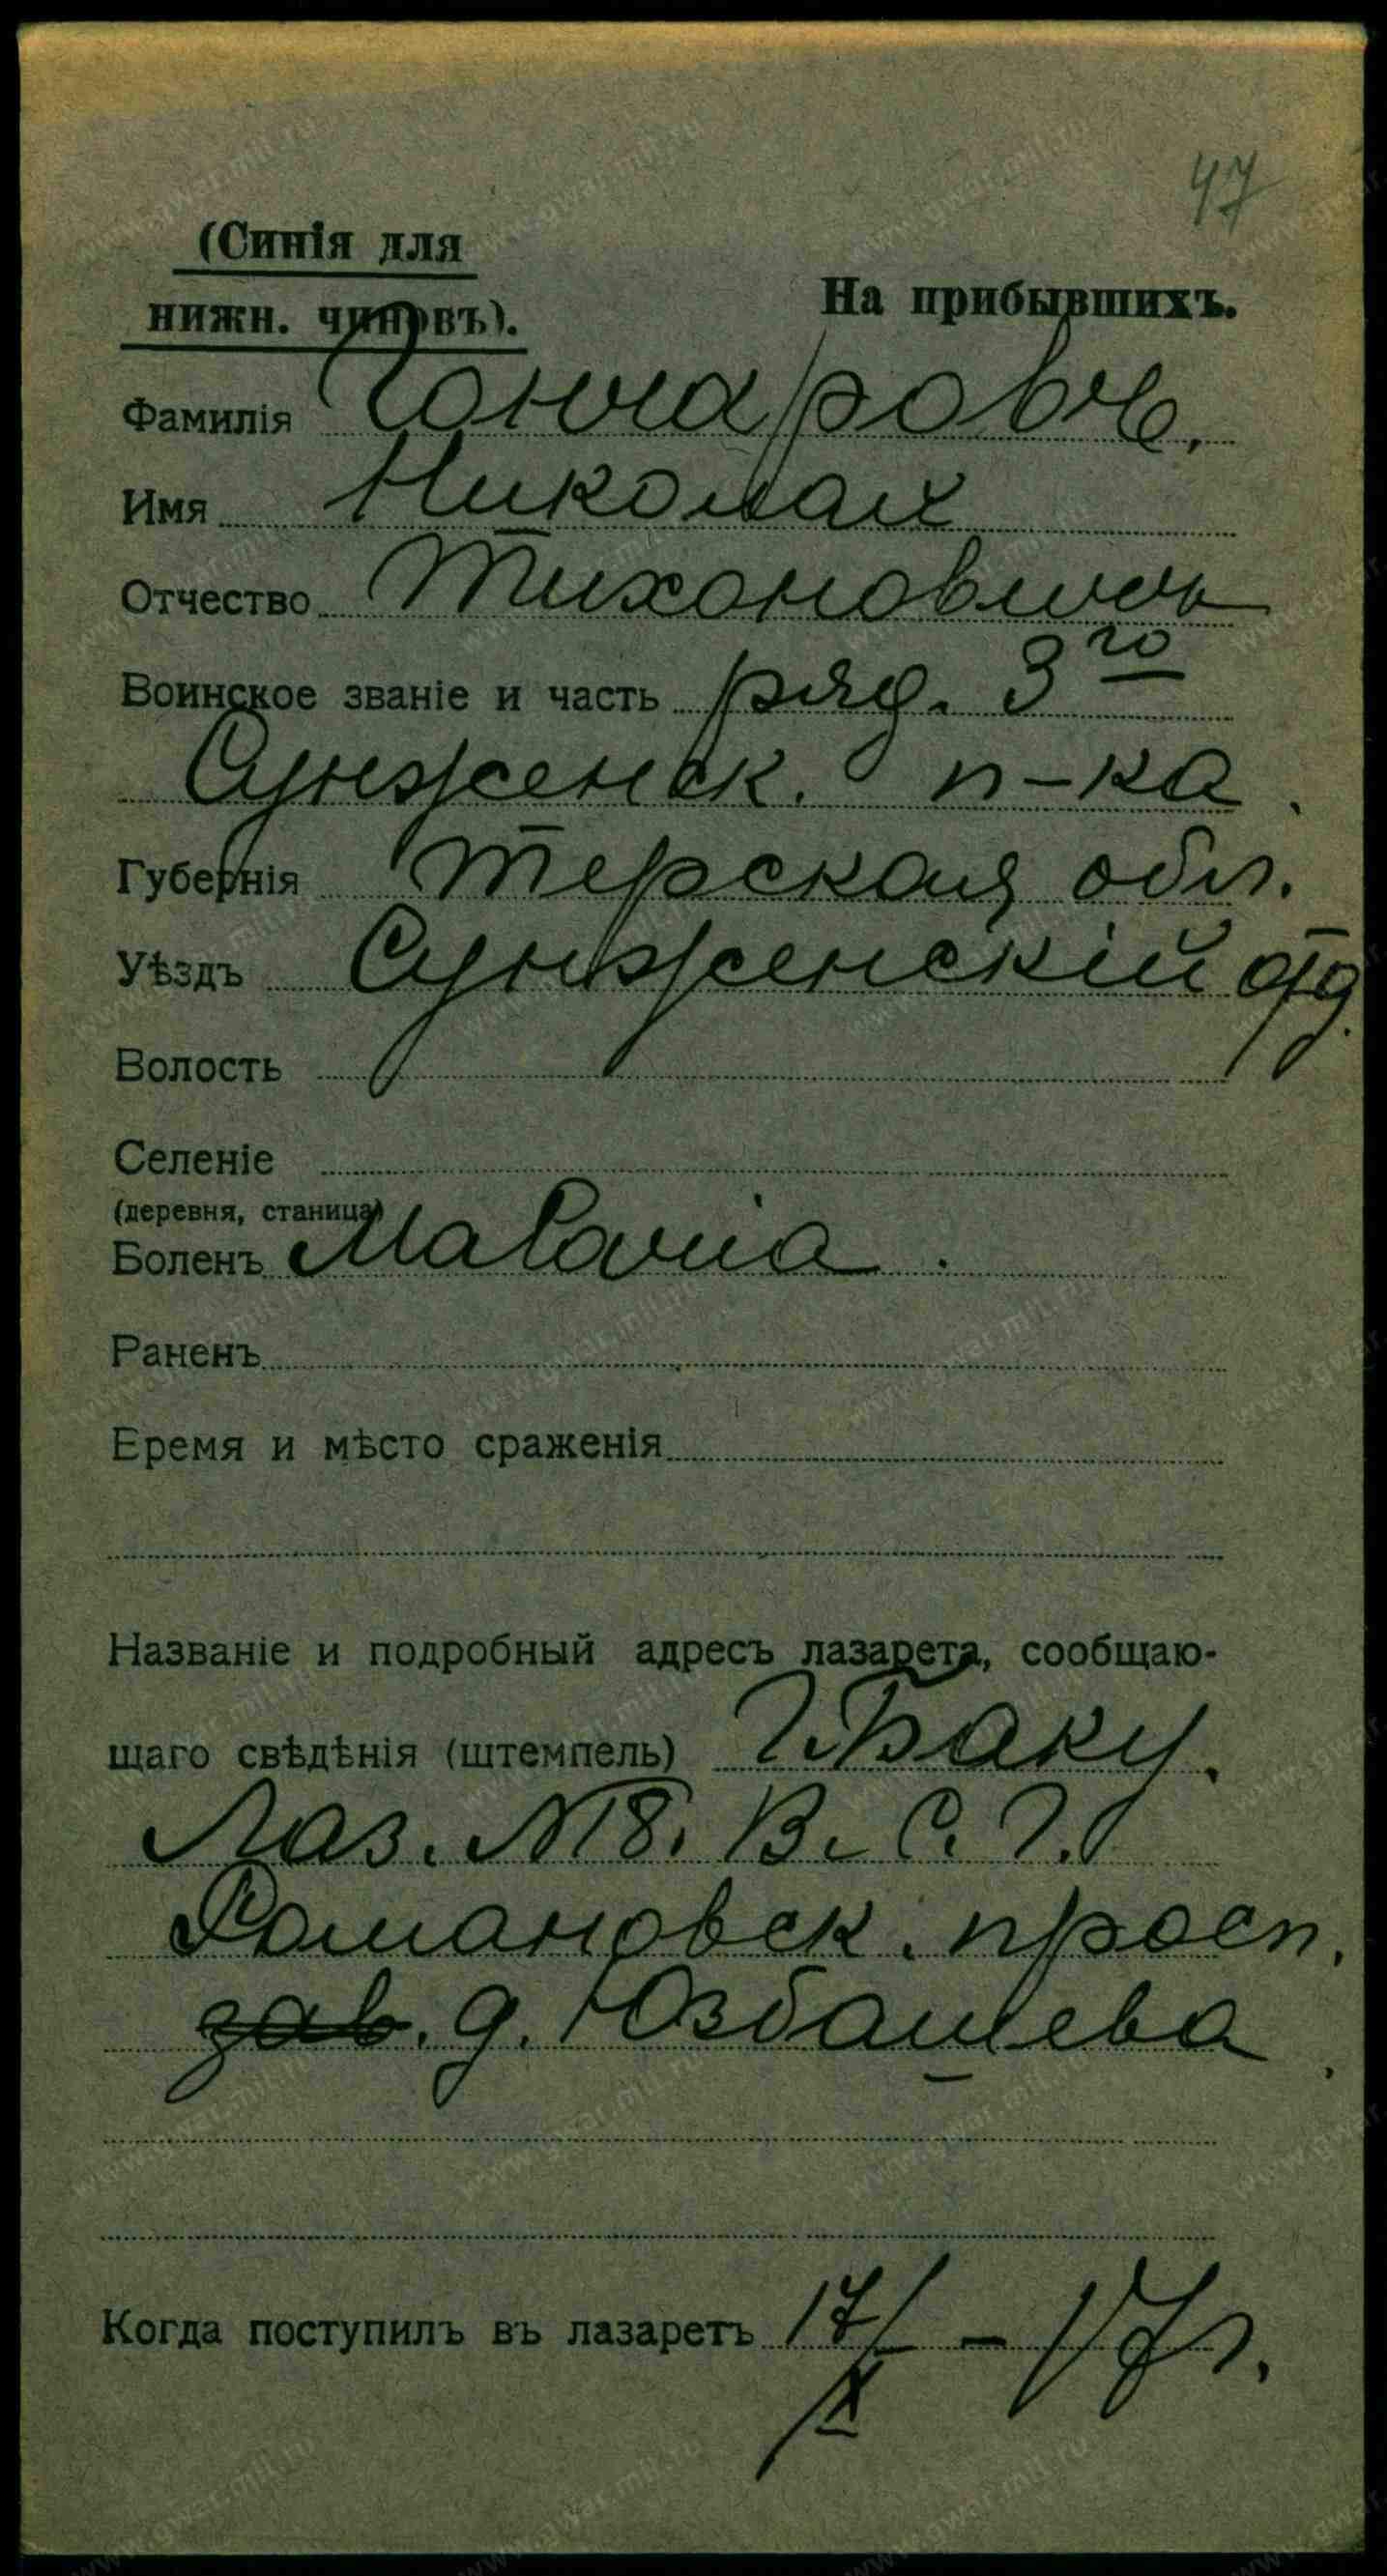 47
(Синія для
нижн. чиновъ).
На прибывшихъ.
Фамилія Гончаровъ.
Имя Николай
Отчество Тихоновичъ
Воинское званіе и часть ряд. 3го
Сунженск. п-ка.
Губернія Терская обл.
Уѣздъ Сунженскій отд.
Волость
Селеніе
(деревня, станица)
Боленъ Malaria.
Раненъ
Еремя и мѣсто сраженія
Названіе и подробный адресъ лазарета, сообщаю-
щаго свѣдѣнія (штемпель) г. Баку.
Лаз. №8. В. С. Г.
Романовск. просп.
зав. д. Юзбашева.
Когда поступилъ въ лазаретъ 17/X – 17 г.
www.gwar.mil.ru